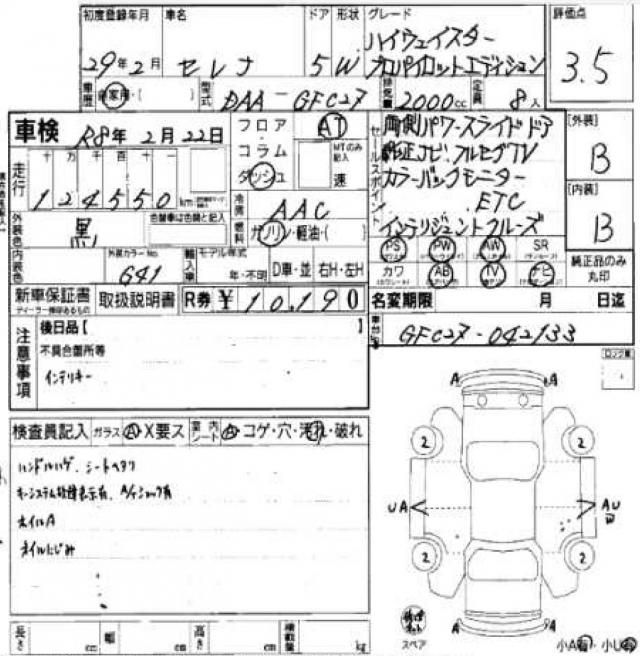 初度登録年月 車名 ドア 形状 グレード 評価点
29年2月 セレナ 5 W ハイウェイスター
プロパイロットエディション
3.5
車歴 自家用・( ) 型式 DAA-GFC27 排気量 2000cc 定員 8人
車検 R8年2月22日
フロア・
コラム
ダッシュ
AT
MTのみ
記入
速
セールスポイント
両側パワースライドドア
純正ナビ・フルセグTV
カラーバックモニター
ETC
インテリジェントクルーズ
[外装]
B
[内装]
B
走行 十 万 千 百 十 一
124550 km
冷房 AAC
燃料 ガソリン・軽油・( )
外装色 黒 色替車は色替と記入
内装色 外装カラーNo. 641
輸入車 モデル年式
年・不明 D車・並 右H・左H
PS PW AW SR
カワ AB TV ナビ
純正品のみ
丸印
新車保証書 取扱説明書 R券 ¥10.190
名変期限 月 日迄
車台No. GFC27-042133
注意事項
後日品 [ ]
不具合箇所等
インテリキー
検査員記入 ガラス A・X要ス 室内シート A・コゲ・穴・汚れ・破れ
ハンドルハゲ、シートヘタリ
キーシステム故障表示有、A/Cショック有
ホイルA
オイルにじみ
A A
2 2
UA AU
2 2
A A
スペア
小A 小U
長さ cm 幅 cm 高さ cm 積載量 kg